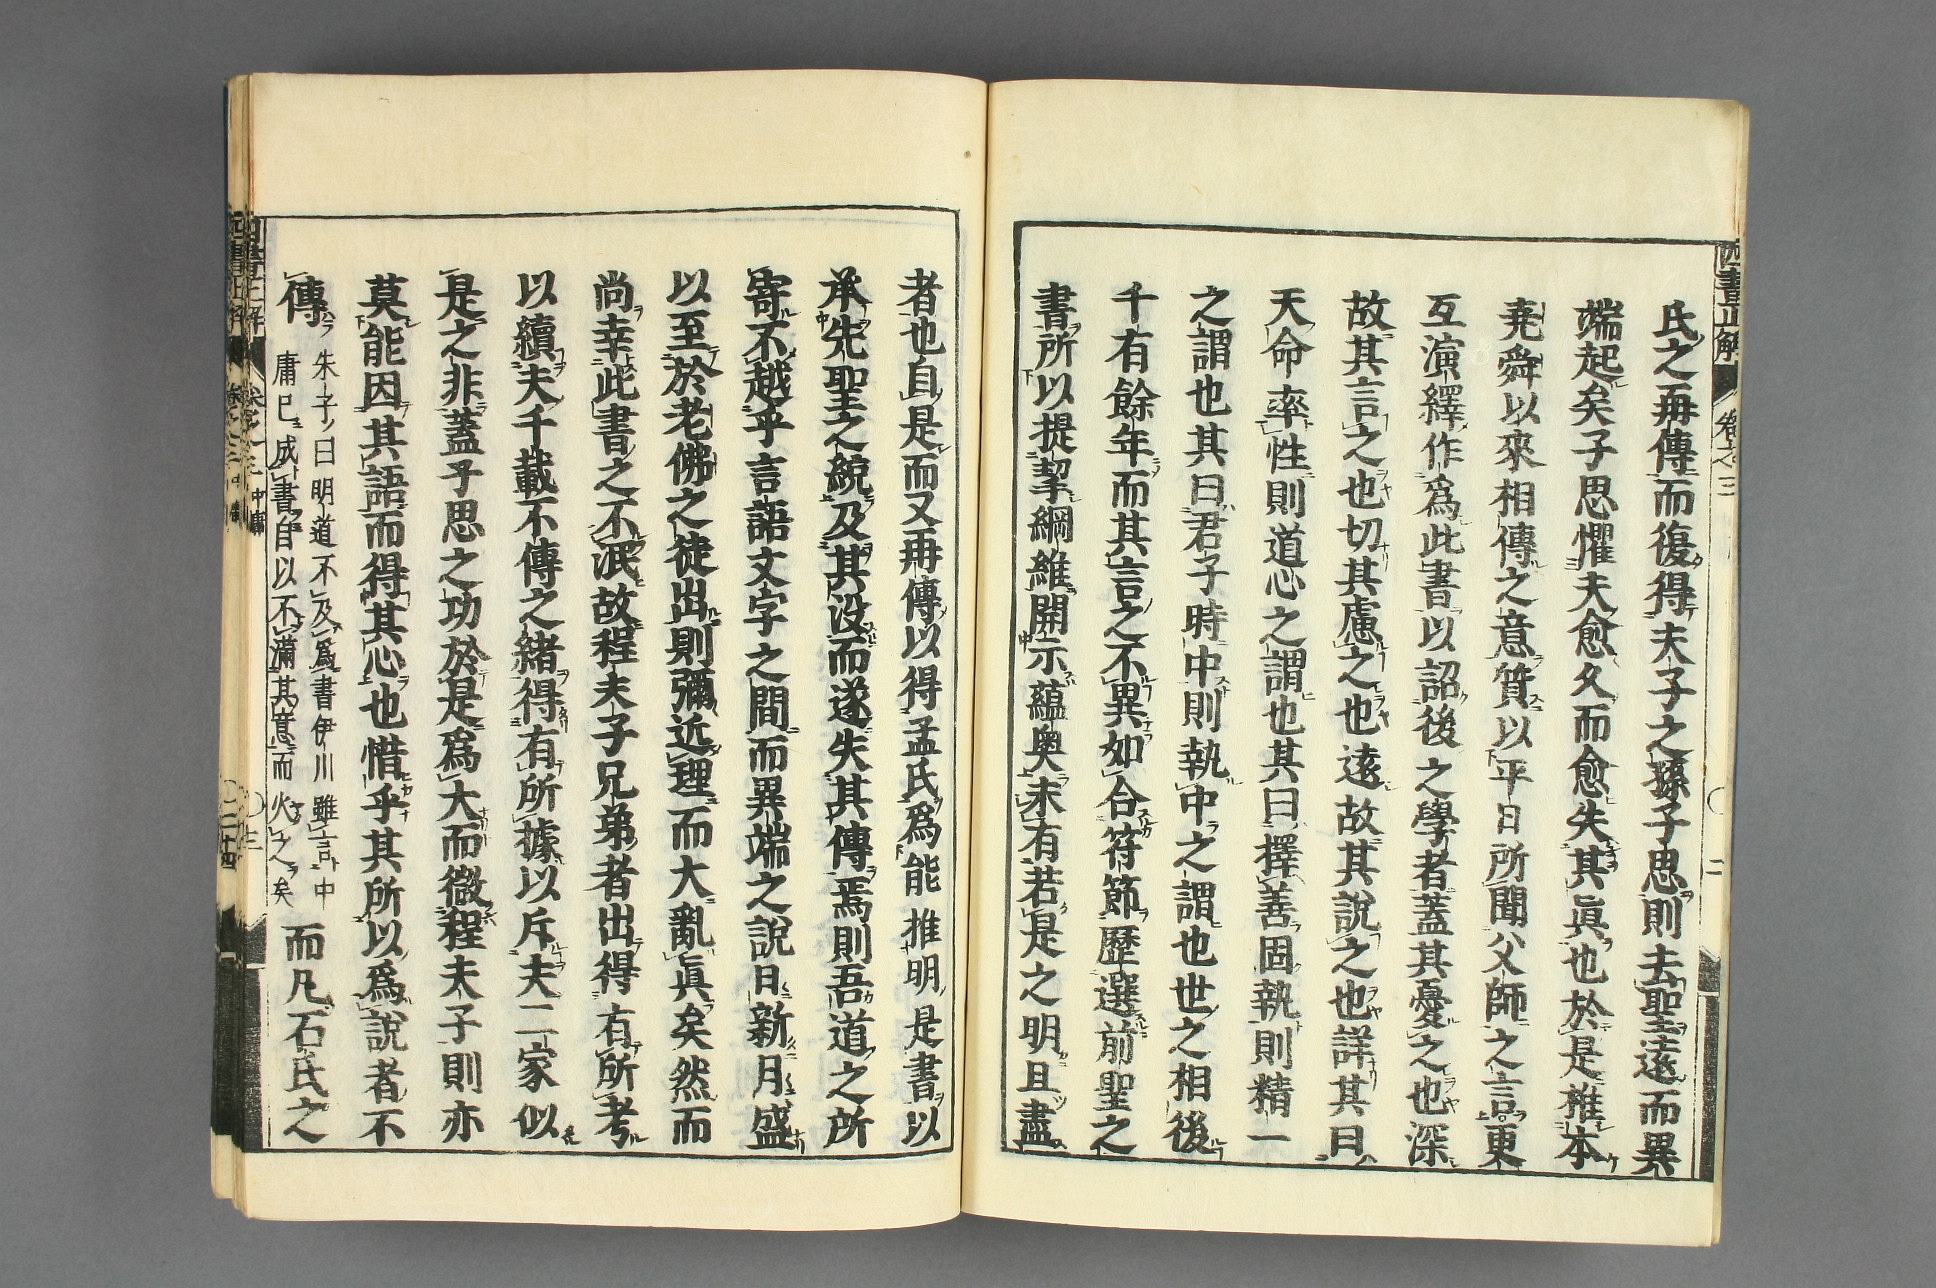 四書正解 卷之三 二
氏之再傳而復得夫子之孫子思則去聖遠而異
端起矣子思懼夫愈久而愈失其眞也於是推本
堯舜以來相傳之意質以平日所聞父師之言更
互演繹作爲此書以詔後之學者蓋其憂之也深
故其言之也切其慮之也遠故其說之也詳其曰
天命率性則道心之謂也其曰擇善固執則精一
之謂也其曰君子時中則執中之謂也世之相後
千有餘年而其言之不異如合符節歷選前聖之
書所以提挈綱維開示蘊奧未有若是之明且盡
者也自是而又再傳以得孟氏爲能推明是書以
承先聖之統及其沒而遂失其傳焉則吾道之所
寄不越乎言語文字之間而異端之說日新月盛
以至於老佛之徒出則彌近理而大亂眞矣然而
尚幸此書之不泯故程夫子兄弟者出得有所考
以續夫千載不傳之緒得有所據以斥夫二家似
是之非蓋子思之功於是爲大而微程夫子則亦
莫能因其語而得其心也惜乎其所以爲說者不
傳
朱子曰明道不及爲書伊川雖言中
庸已成書自以不滿其意而火之矣
而凡石氏之